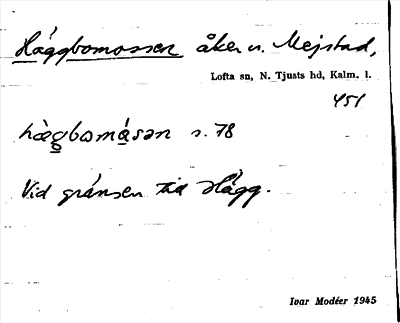 Häggbomossen åker v. Mejstad,
Lofta sn, N. Tjusts hd, Kalm. l.
451
hàgbomåsən s. 78
Vid gränsen till Hägg.
Ivar Modéer 1945